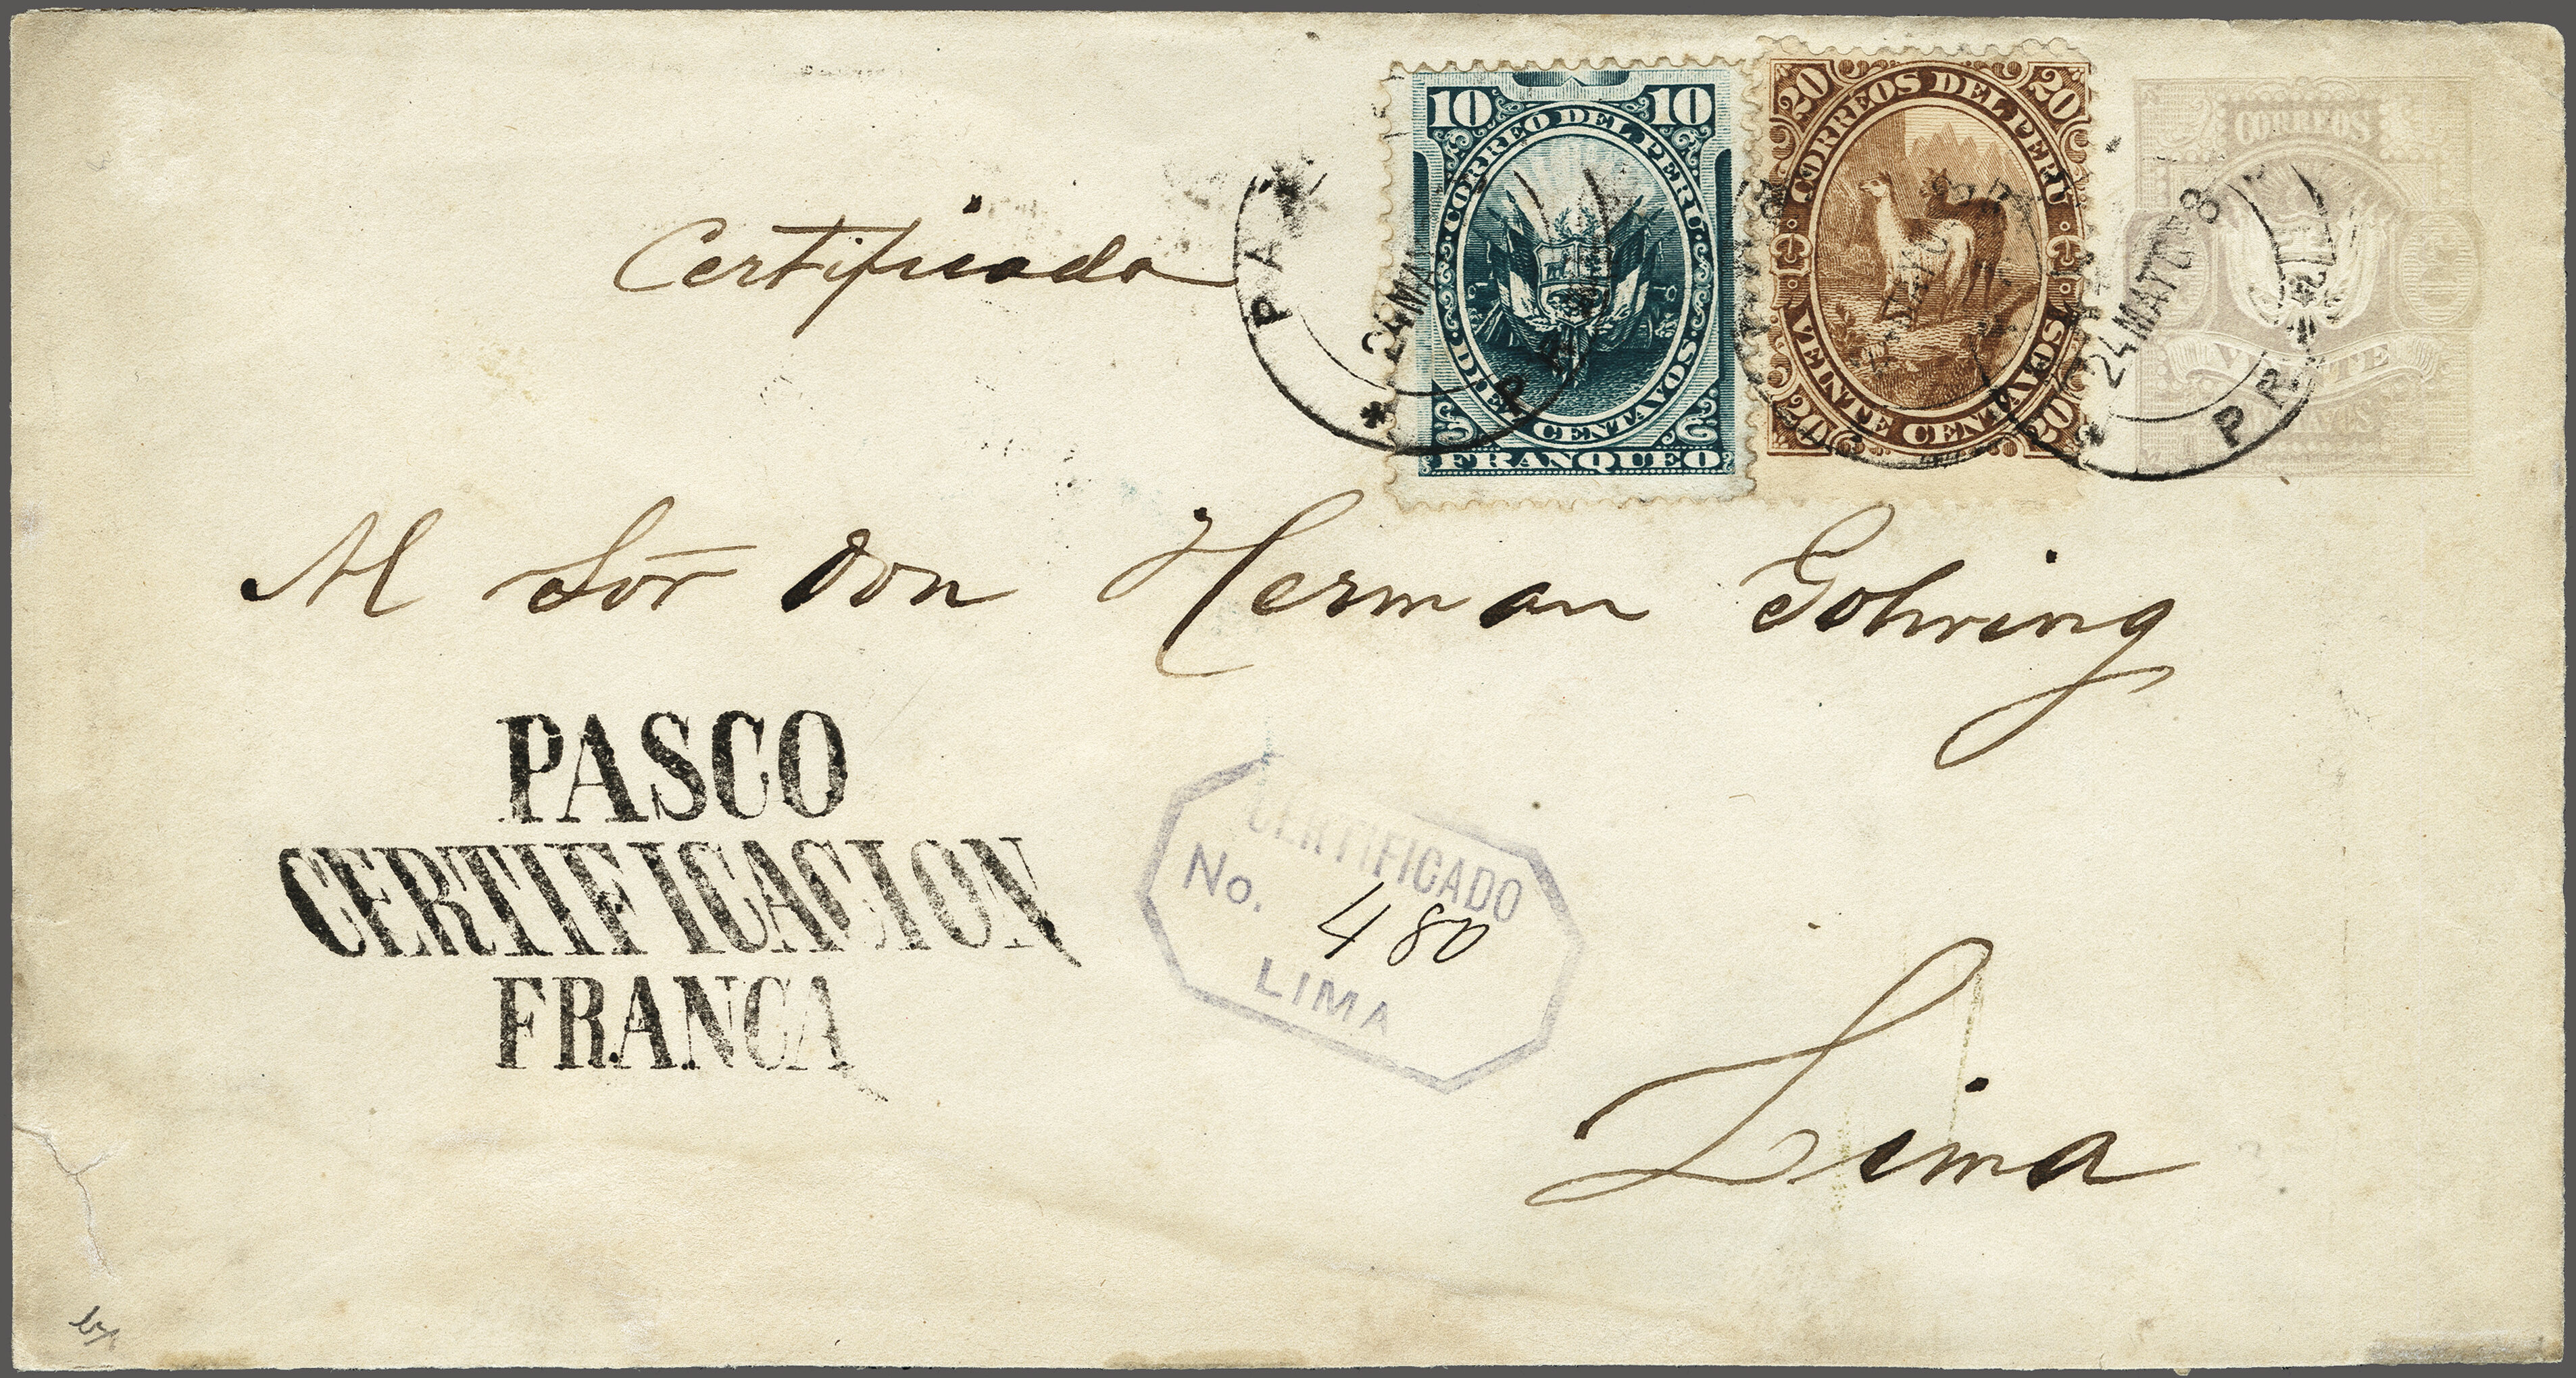 10 10
CORREO DEL PERU
DIEZ CENTAVOS
FRANQUEO
20 20
CORREOS DEL PERU
VEINTE CENTAVOS
20 20
CORREOS
20 20
VEINTE
24 MA
P
24 MAYO 78
PR
Certificado
Al Sōr don Herman Gohring
PASCO
CERTIFICACION
FRANCA
CERTIFICADO
No. 480
LIMA
Lima